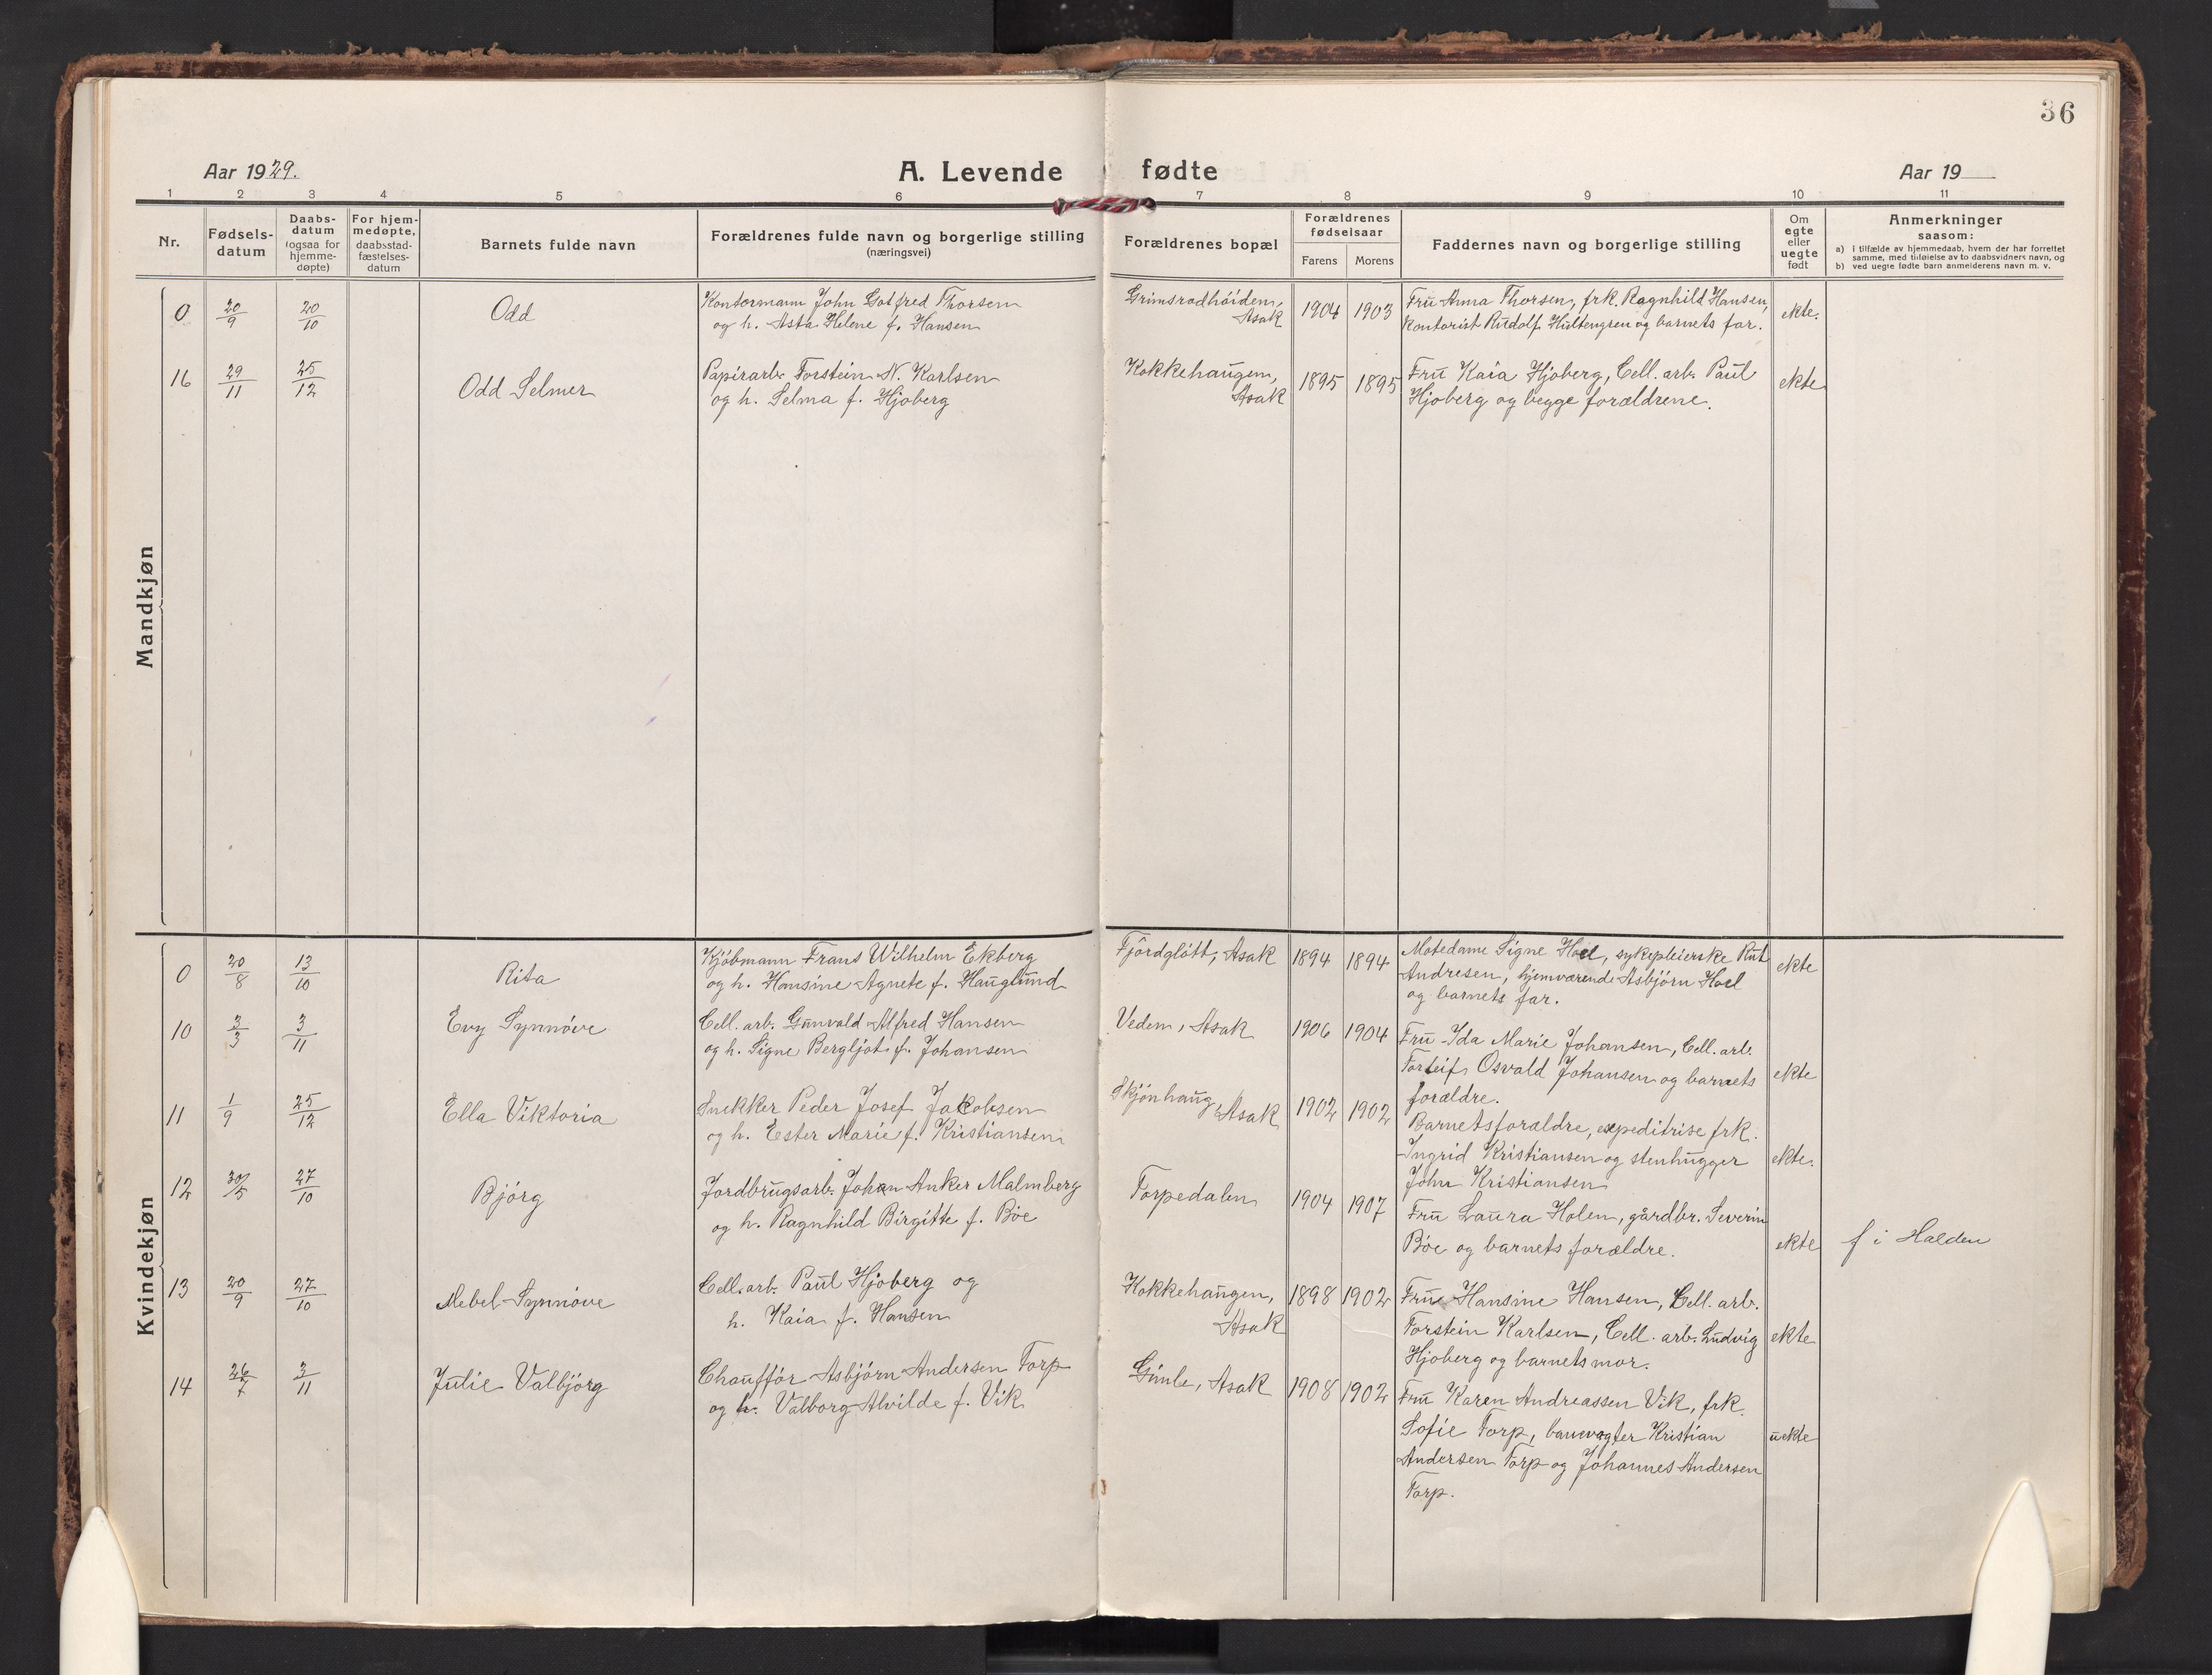 36
Aar 1929.
A. Levende fødte
Aar 19
1 2 3 4 5 6 7 8 9 10 11
Nr.
Fødsels-
datum
Daabs-
datum
(ogsaa for
hjemme-
døpte)
For hjem-
medøpte,
daabsstad-
fæstelses-
datum
Barnets fulde navn
Forældrenes fulde navn og borgerlige stilling
(næringsvei)
Forældrenes bopæl
Forældrenes
fødselsaar
Farens Morens
Faddernes navn og borgerlige stilling
Om
egte
eller
uegte
født
Anmerkninger
saasom:
a) i tilfælde av hjemmedaab, hvem der har forrettet
samme, med tilføielse av to daabsvidners navn, og
b) ved uegte fødte barn anmelderens navn m. v.
Mandkjøn
0
20/9
20/10
Odd
Kontormann John Gotfred Thorsen
og h. Asta Helene f. Hansen
Grimsrødhöiden,
Asak
1904 1903
Fru Anna Thorsen, frk. Ragnhild Hansen,
Kontorist Rudolf Hultengren og barnets far.
ekte.
16
29/11
25/12
Odd Selmer
Papirarb. Torstein N. Karlsen
og h. Selma f. Hjoberg
Kokkehaugen,
Asak
1895 1895
Fru Kaia Hjoberg, Cell. arb. Paul
Hjoberg og begge forældrene.
ekte
Kvindekjøn
0
20/8
13/10
Rita
Kjöbmann Frans Wilhelm Ekberg
og h. Hansine Agnete f. Hauglund
Fjordglött, Asak
1894 1894
Motedame Signe Hoel, sykepleierske Rut
Andresen, hjemværende Asbjörn Hoel
og barnets far.
ekte
10
3/3
3/11
Evy Synnöve
Cell. arb. Gunvald Alfred Hansen
og h. Signe Bergljot f. Johansen
Vedem, Asak
1906 1904
Fru Ida Marie Johansen, Cell. arb.
Torleif Osvald Johansen og barnets
forældre.
ekte
11
1/9
25/12
Ella Viktoria
Snekker Peder Josef Jakobsen
og h. Ester Marie f. Kristiansen
Skjönhaug,
Asak
1902 1902
Barnets forældre, expeditrise frk.
Ingrid Kristiansen og stenhugger
John Kristiansen
ekte.
12
30/5
27/10
Bjórg
Jordbrugsarb. Johan Anker Malmberg
og h. Ragnhild Birgitte f. Böe
Torpedalen
1904 1907
Fru Laura Holen, gårdbr. Severin
Böe og barnets forældre.
ekte
f i Halden
13
20/9
27/10
Mebel Synnöve
Cell. arb. Paul Hjoberg og
h. Kaia f. Hansen
Kokkehaugen,
Asak
1898 1902
Fru Hansine Hansen, Cell. arb.
Torstein Karlsen, Cell. arb. Ludvig
Hjoberg og barnets mor.
ekte
14
26/7
3/11
Julie Valbjörg
Chaufför Asbjörn Andersen Torp
og h. Valborg Alvilde f. Vik
Gimle, Asak
1908 1902
Fru Karen Andreassen Vik, frk.
Sofie Torp, banevagter Kristian
Andersen Torp og Johannes Andersen
Torp.
uekte